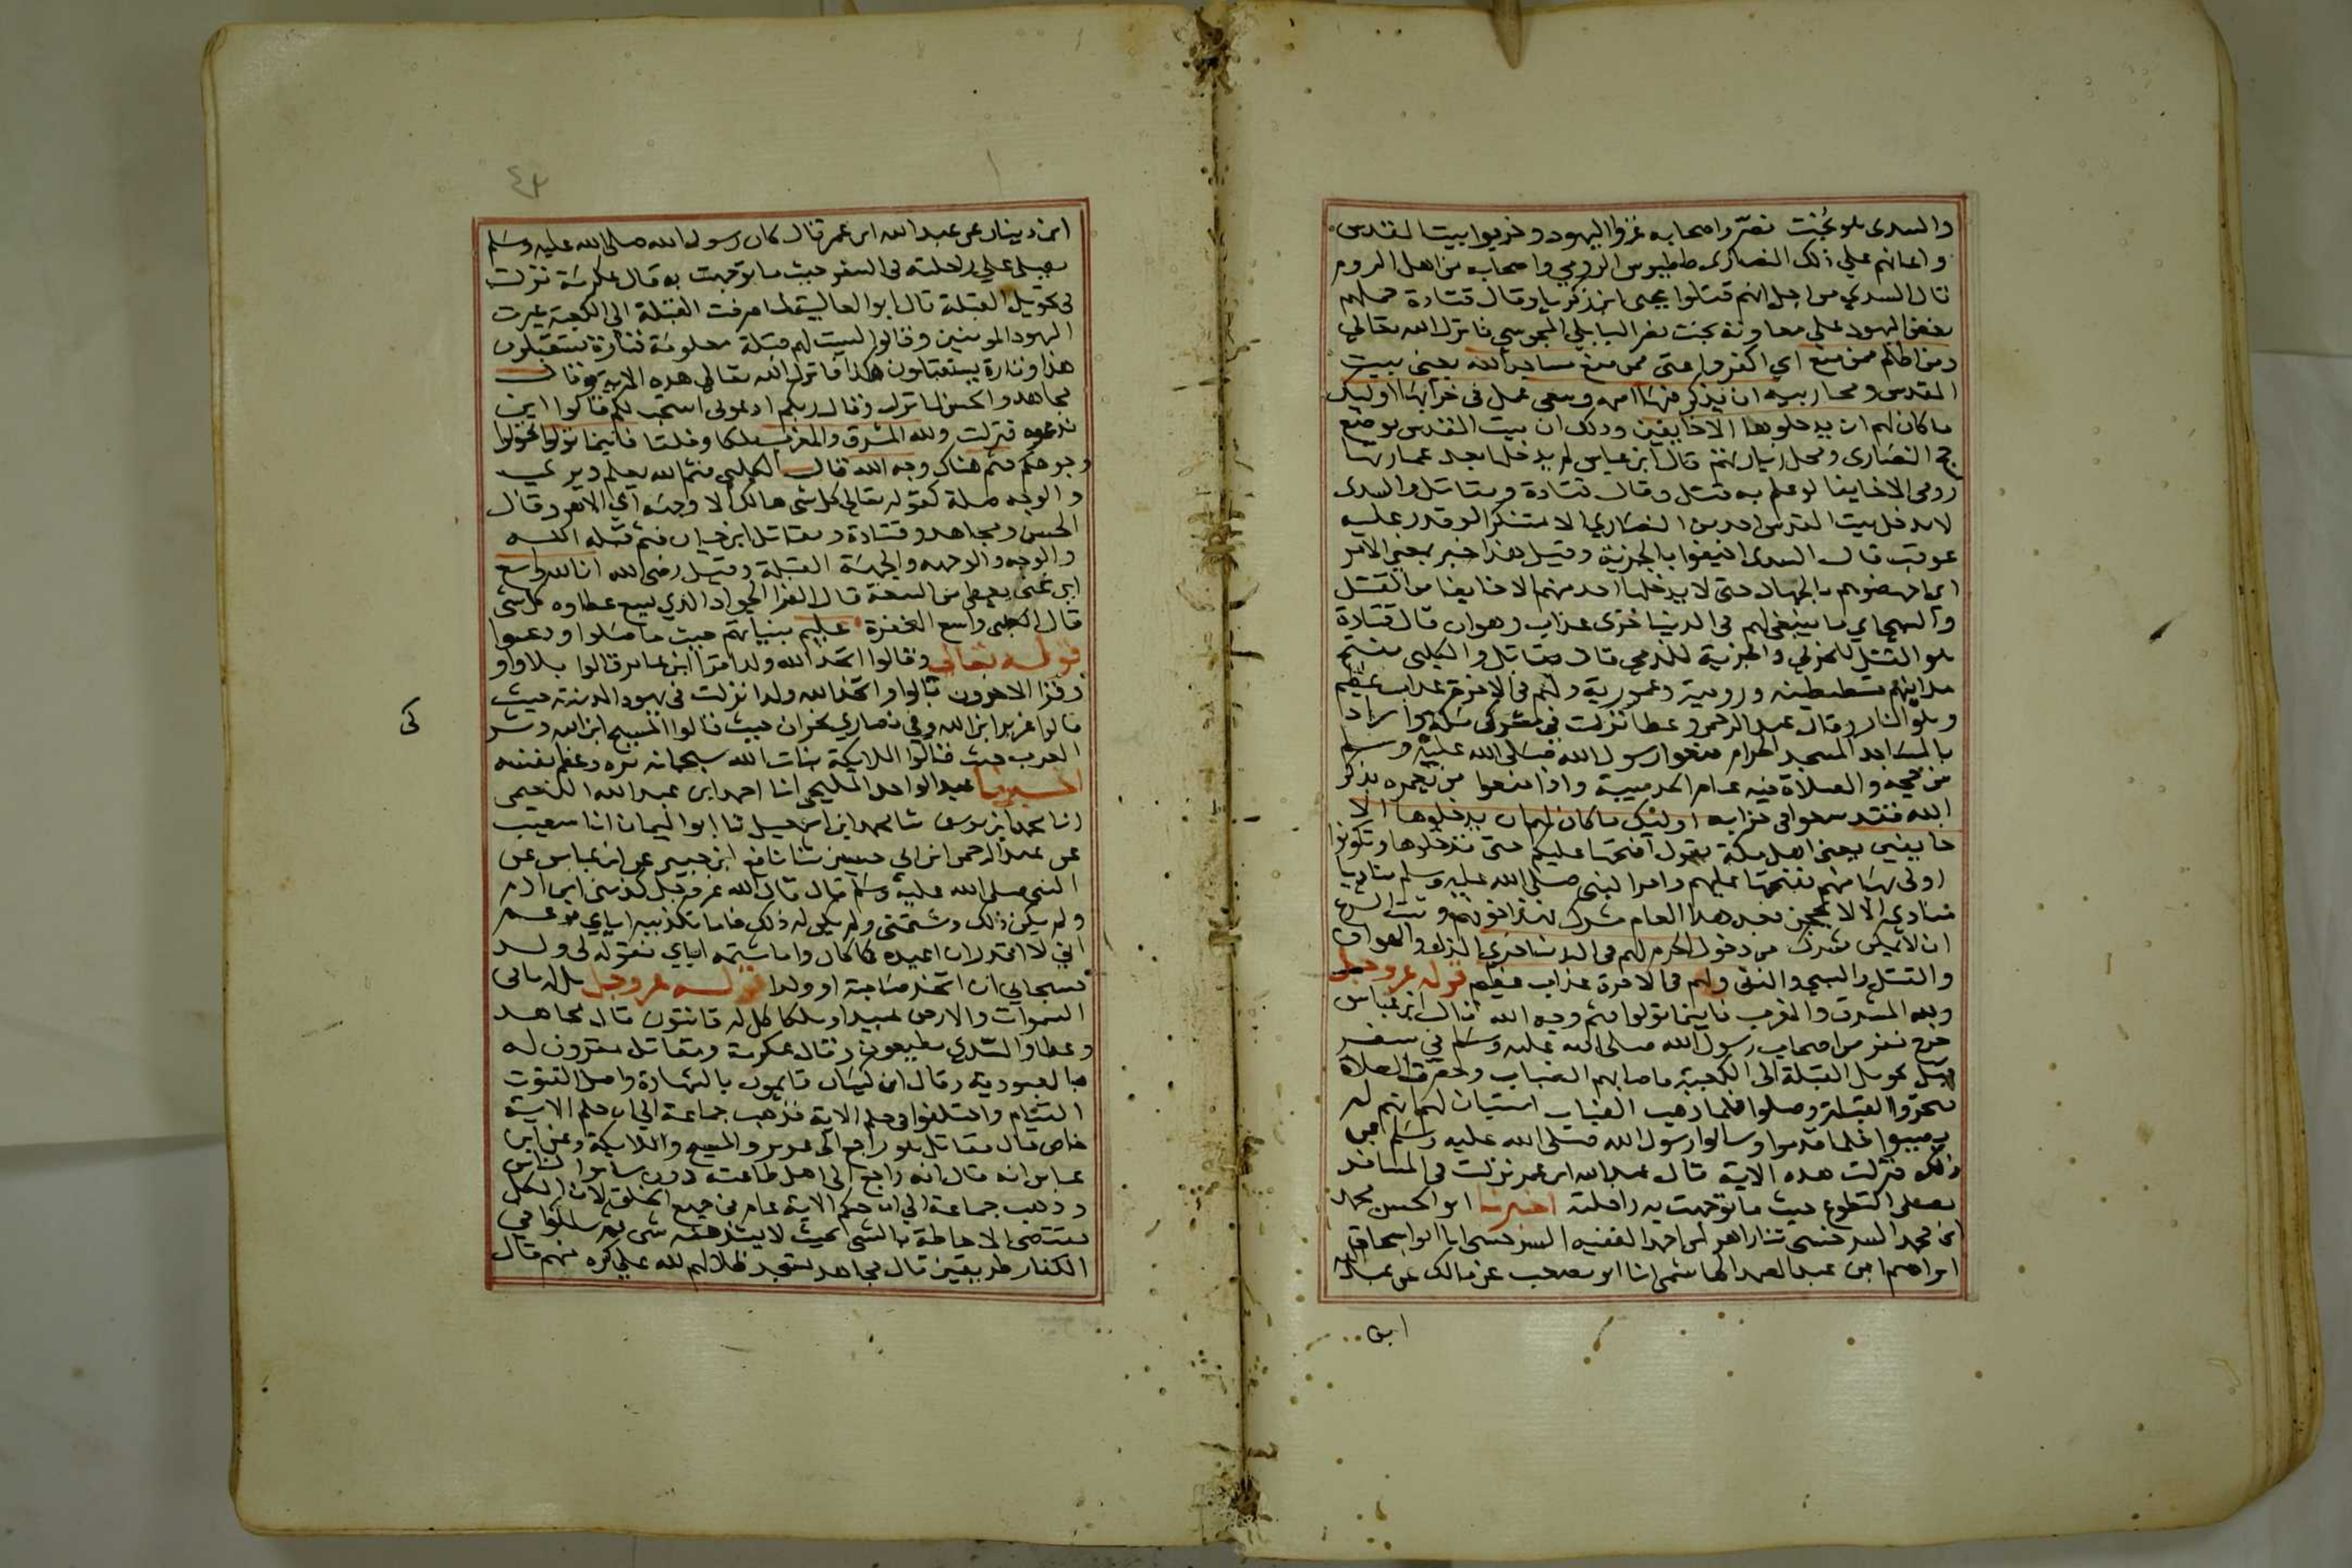 والسدى هو بُخْت نصّر واصحابه غزوا اليهود وخربوا بيت المقدس
واعانهم على ذلك النصارى ططيوس الرومي واصحابه من اهل الروم
قال السدي من اجل انهم قتلوا يحيى ابن زكريا وقال قتادة حملهم
بغض اليهود على معاونة بخت نصر البابلي المجوسي فانزل الله تعالى
ومن اظلم ممن منع اي اكفر واعتى ممن منع مساجد الله يعنى بيت
المقدس ومحاريبه ان يذكر فيها اسمه وسعى عمل فى خرابها اوليك
ما كان لهم ان يدخلوها الا خايفين وذلك ان بيت المقدس موضع
حج النصارى ومحل زيارتهم قال ابن عباس لم يدخلها بعد عمارتها
رومى الا خايفا لو علم به قتل وقال قتادة ومقاتل والسدى
لا يدخل بيت المقدس احد من النصاري الا متنكرا لو قدر عليه
عوقب قال السدى اخيفوا بالجزية وقيل هذا خبر بمعنى الامر
اى اجهضوهم بالجهاد حتى لا يدخلها احد منهم الا خايفا من القتل
والسبي اي ما ينبغى لهم فى الدنيا خزى عذاب وهوان قال قتادة
هو القتل للحربي والجزية للذمي قال مقاتل والكلبى فتح
مداينهم قسطنطينه ورومية وعمورية ولهم فى الاخرة عذاب عظيم
وهو النار وقال عبد الرحمن وعطا نزلت في مشركى مكه وارادا
بالمساجد المسجد الحرام منعوا رسول الله صلى الله عليه وسلم
من حجه والصلاة فيه عام الحديبية واذا منعوا من تعمره بذكر
الله فقد سعوا فى خرابه اولئك ما كان لهم ان يدخلوها الا
خايفين يعنى اهل مكة يقول افتحها عليكم حتى تدخلوها وتكونوا
اولى بها منهم ففتحها عليهم وامر النبى صلى الله عليه وسلم مناديا
ينادي الا لا يحجن بعد هذا العام مشرك فهذا خوفهم وثبت الشرع
ان لا يمكن مشرك من دخول الحرم لهم فى الدنيا خزي الذل والهوان
والقتل والسبي والنفى ولهم فى الاخرة عذاب عظيم قوله عز وجل
ولله المشرق والمغرب فاينما تولوا فثم وجه الله قال ابن عباس
خرج نفر من اصحاب رسول الله صلى الله عليه وسلم في سفر
قبل تحويل القبلة الى الكعبة فاصابهم الضباب وحضرت الصلاة
فتحروا القبلة وصلوا فلما ذهب الضباب استبان لهم انهم لم
يصيبوا فلما قدموا وسالوا رسول الله صلى الله عليه وسلم عن
ذلك فنزلت هذه الاية قال عبد الله ابن عمر نزلت فى المسافر
يصلى التطوع حيث ما توجهت به راحلته اخبرنا ابو الحسن محمد
ابن محمد السرخسى ثنا زاهر ابن احمد الفقيه السرخسى انا ابو اسحاق
ابراهيم ابن عبد الصمد الهاشمى انا ابو مصعب عن مالك عن عبد الله
ابن
٤٣
ابن دينار عن عبد الله ابن عمر قال كان رسول الله صلى الله عليه وسلم
يصلى على راحلته فى السفر حيث ما توجهت به قال عكرمة نزلت
فى تحويل القبلة قال ابو العالية لما صرفت القبلة الى الكعبة عيرت
اليهود المومنين وقالوا ليست لهم قبلة معلومة فتارة يستقبلون
هذا وتارة يستقبلون هكذا فانزل الله تعالى هذه الاية وقال
مجاهد والحسن لما نزلت وقال ربكم ادعونى استجب لكم قالوا اين
ندعوه فنزلت ولله المشرق والمغرب ملكا وخلقا فاينما تولوا تحولوا
وجوهكم فثم هناك وجه الله قال الكلبي فثم الله يعلم ويري
والوجه صلة كقوله تعالى كل شى هالك الا وجهه اي الا هو وقال
الحسن ومجاهد وقتادة ومقاتل ابن حيان فثم قبلة الله
والوجه والوجهه والجهة القبلة وقيل رضى الله ان الله واسع
اي غنى يعطى من السعة قال الفرا الجواد الذي يسع عطاوه كل شى
قال الكلبى واسع المغفرة عليم بنياتهم حيث ما صلوا ودعوا
قوله تعالى وقالوا اتخذ الله ولدا قرا ابن عامر قالوا بلا واو
وقرا الاخرون وقالوا اتخذ الله ولدا نزلت فى يهود المدينه حيث
قالوا عزير ابن الله وفي نصاري نجران حيث قالوا المسيح ابن الله ومشر
كى
العرب حيث قالوا الملايكة بنات الله سبحانه نزه وعظم نفسه
اخبرنا عبد الواحد المليحى انا احمد ابن عبد الله النعيمى
انا محمد ابن يوسف ثنا محمد ابن اسمعيل ثنا ابو اليمان انا شعيب
عن عبد الرحمن ابن ابي حسين ثنا نافع ابن جبير عن ابن عباس عن
النبى صلى الله عليه وسلم قال قال الله عز وجل كذبنى ابن ادم
ولم يكن ذلك وشتمنى ولم يكن له ذلك فاما تكذيبه اياي فزعم
اني لا اقدر ان اعيده كما كان واما شتمه اياي فقوله لى ولد
فسبحاني ان اتخذ صاحبة او ولدا قوله عز وجل بل له ما فى
السموات والارض عبيدا وملكا كل له قانتون قال مجاهد
وعطا والسدي مطيعون وقال عكرمة ومقاتل مقرون له
بالعبودية وقال ابن كيسان قايمون بالشهادة واصل القنوت
القيام واختلفوا فى حكم الاية فذهب جماعة الى ان حكم الاية
خاص قال مقاتل هو راجع الى عزير والمسيح والملايكة وعن ابن
عباس انه قال انه راجع الى اهل طاعته دون ساير الناس
وذهب جماعة الى ان حكم الاية عام فى جميع الخلق لان الكل
يقتضى الاحاطة بالشى بحيث لا يشذ منه شى ثم سلكوا في
الكفار طريقين قال مجاهد تسجد ظلالهم لله على كره منهم قال